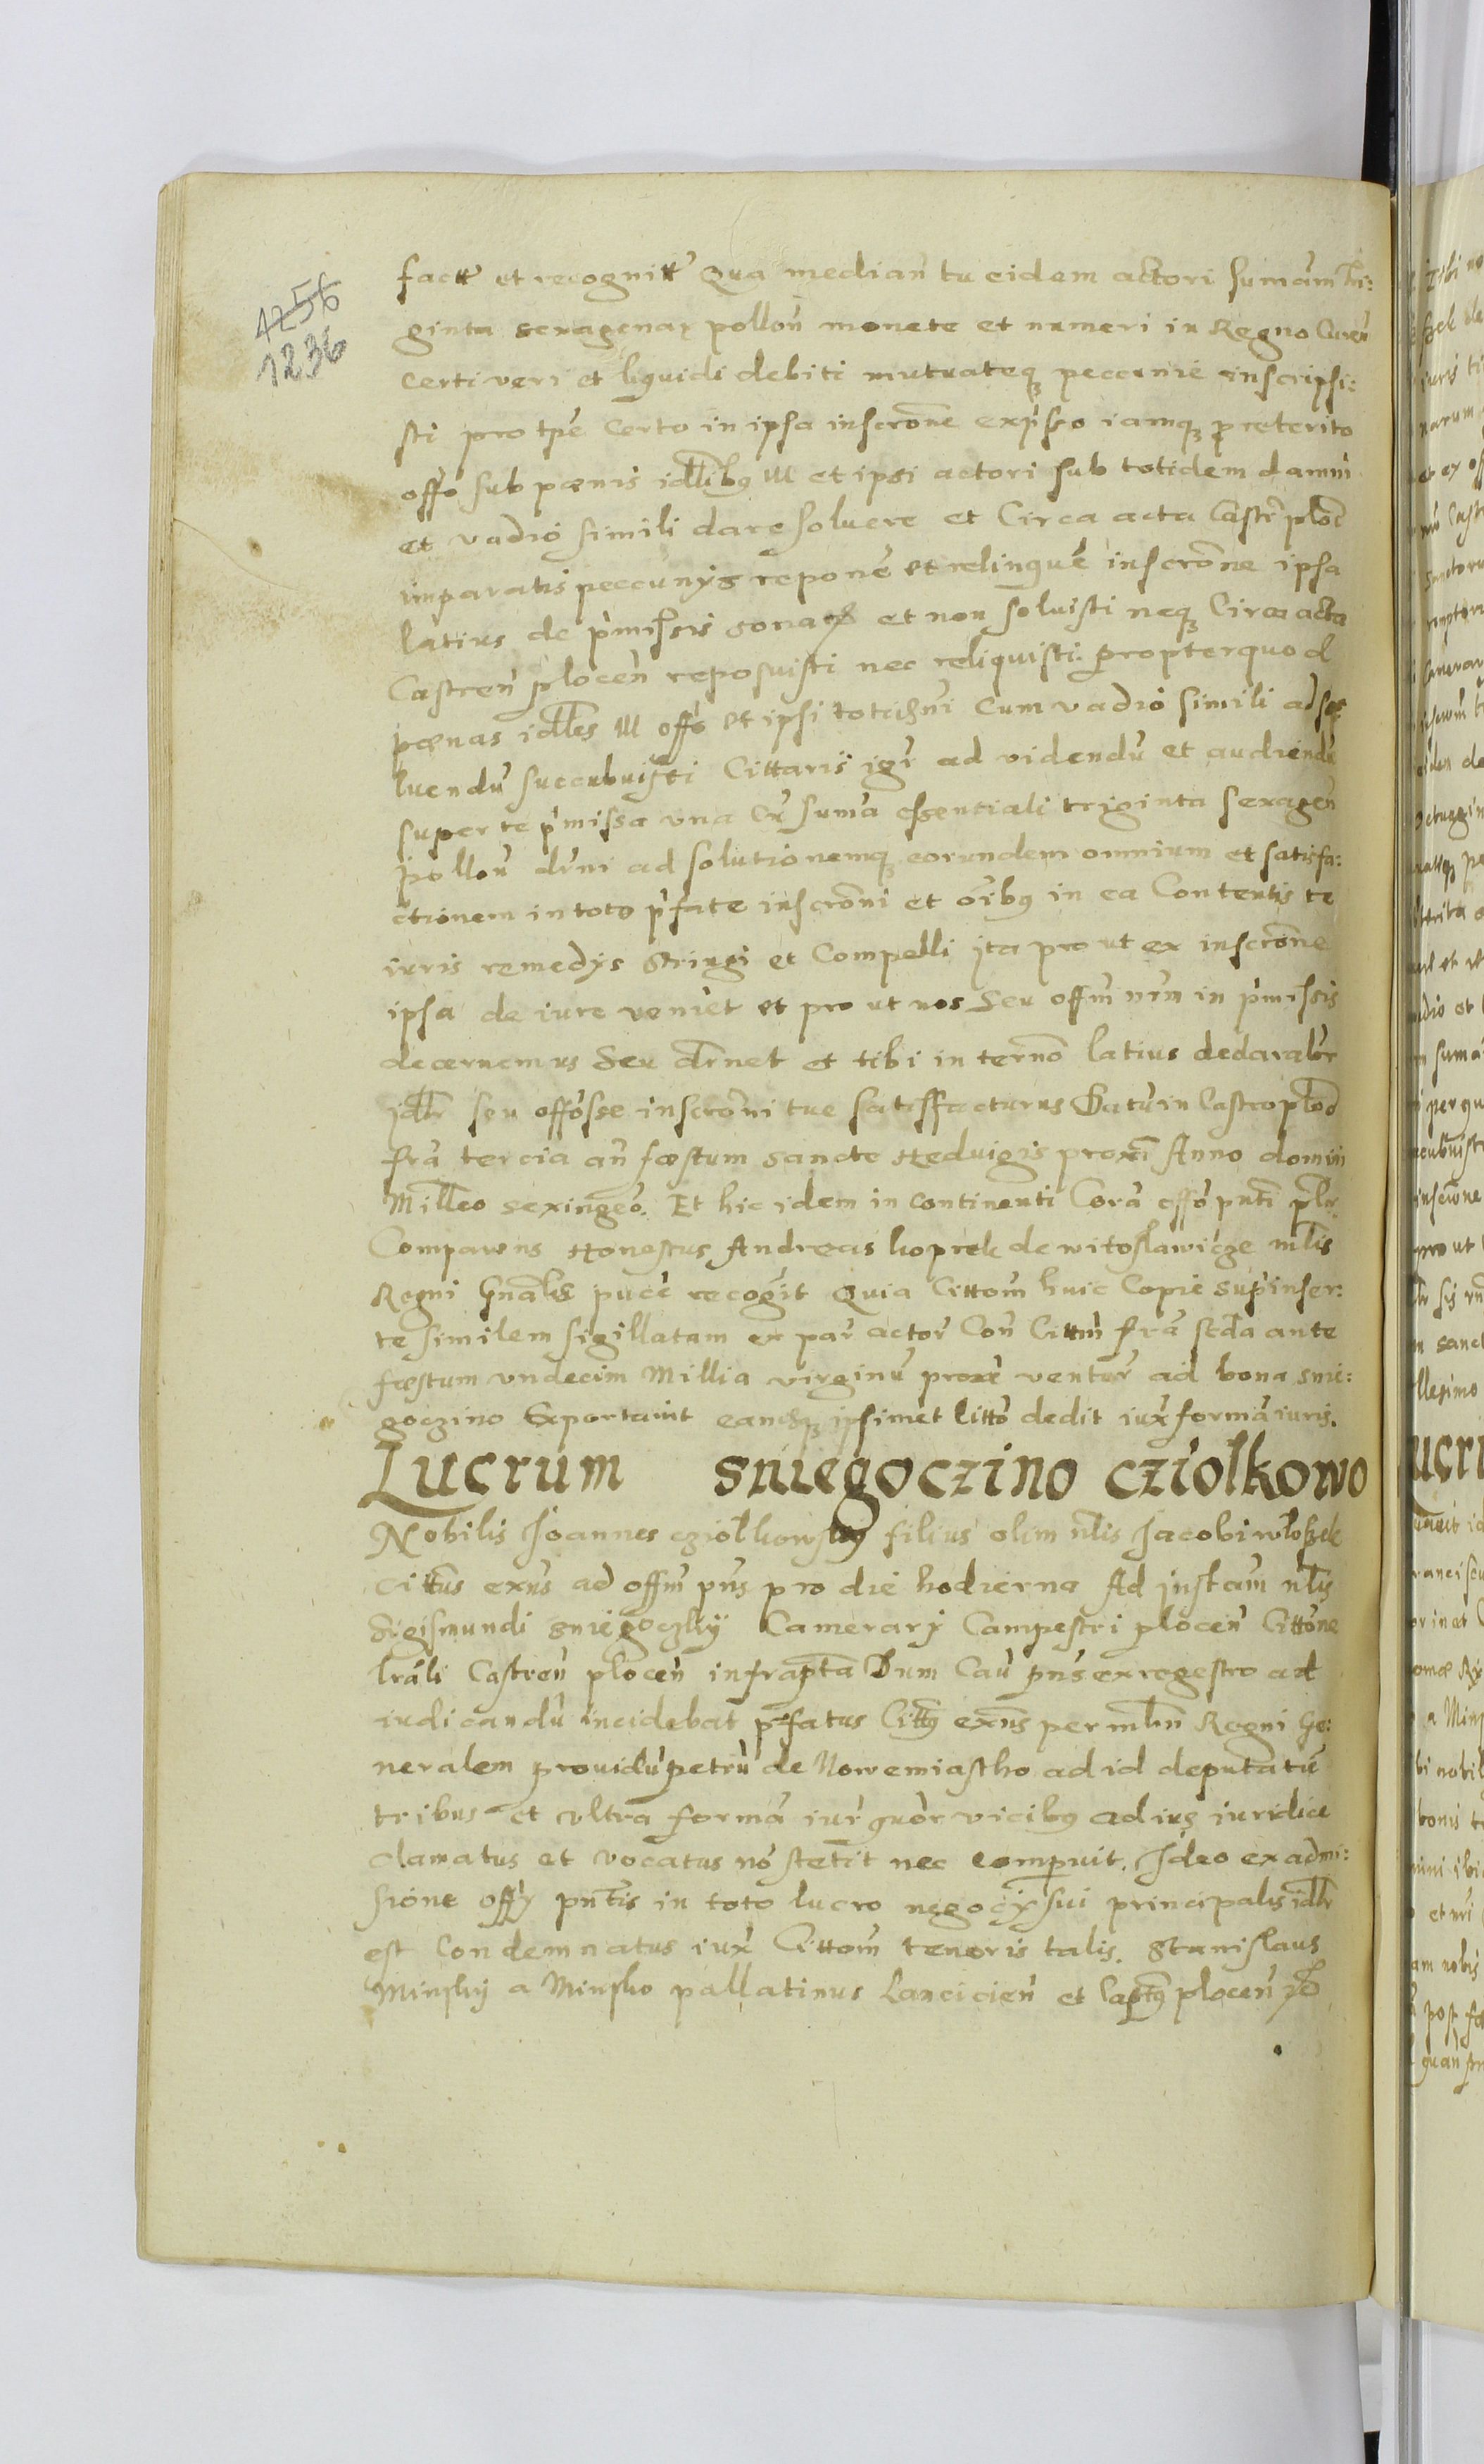 4256
1236
fact͠ et recognit͠ Qua median̄ tu eidem actori sum̄am tri:
ginta sexagenaꝝ pollon̄ monete et numeri in Regno Curen̄
certi veri et liquidi debiti mutuateqꝫ peccunie inscripsi:
sti pro tp̄e certo in ipsa inscr̄one exp̄sso iamqꝫ preterito
off̄o sub pœnis id̄libꝯ III et ipsi actori sub totidem damni
et vadio simili dare soluere et Circa acta Castr̄ ploc̄
imparatis peccunijs repone͂ et relinque͂ inscr̄one ipsa
latius de p̄missis sonan̄ et non soluisti neqꝫ Circa acta
Castren̄ plocen̄ reposuisti nec reliquisti. propterquod
pœnas id̄les III off̄o et ipsi totid͠ni cum vadio simili ad sol
luendū succubuisti Cittaris igr̄ ad videndū et audiendū
super te p̄missa vna Cū sum̄a essentiali triginta sexagen̄
pollon̄ dr̄ni ad solutionemqꝫ eorundem omnium et satisfa:
ctionem in toto p̄fate inscr̄oni et oībꝯ in ea Contentis te
iuris remedys stringi et Compelli ita pro ut ex inscr̄one
ipsa de iure veniet et pro ut nos Seu offm̄ nr̄m in p̄missis
decernemus Seu dr̄net et tibi in ter̄no latius declarabr̄
id̄lr seu off̄osse inscr̄oni tue satisffacturus Datū in Castro ploc̄
fr̄a tercia an̄ fœstum sancte Heduigis prox̄i Anno domini
Mill̄eo sexingeō. Et hic idem in continenti Corā off̄o pn̄ti pl̄r
Comparens Honestus Andreas koprek de witoslawicze ml̄is
Regni Gn̄alis puce recog̃it Quia Cittom̄ huic Copie sup̄inser:
te similem sigillatam ex par̄ actor̄ Con̄ Cittm̄ fr̄a scd̄a ante
fœstum vndecim Millia virginū proxe ventur̄ ad bona snie:
goczino Exportauit eamqꝫ ipsimet litto̅ dedit iux̄ formā iuris.
Lucrum sniegoczino cziolkowo
Nobilis Joannes cziolkowsky filius olim n̄lis Jacobi wlosek
cittus exn̄s ad offm̄ pn̄s pro die hodierna Ad jnstam̄ n̄lis
Sigismundi sniegoczky Camerarj Campestri plocen̄ Cittone
lr̄ali Castren̄ plocen̄ infrapt̄a Dum Caū pn̄s ex regestro ad
iudicandū incidebat p̄fatus Cittꝯ exn̄s per ml̄m Regni Ge:
neralem prouidū petrū de Nowemiastho ad id deputatū
tribus et vltra formā iur̄ quor̄ vicibꝯ ad ius iuridice
clamatus et vocatus nō stetit nec comparuit. Ideo ex admi:
sione offy pn̄tis in toto lucro negocij sui principalis id̄lr
est Condemnatus iux̄ Cittom̄ tenoris talis. Stanislaus
Minsky a Minsko pallatinus Lancicien̄ et Captꝯ plocen̄ ꝛc̄